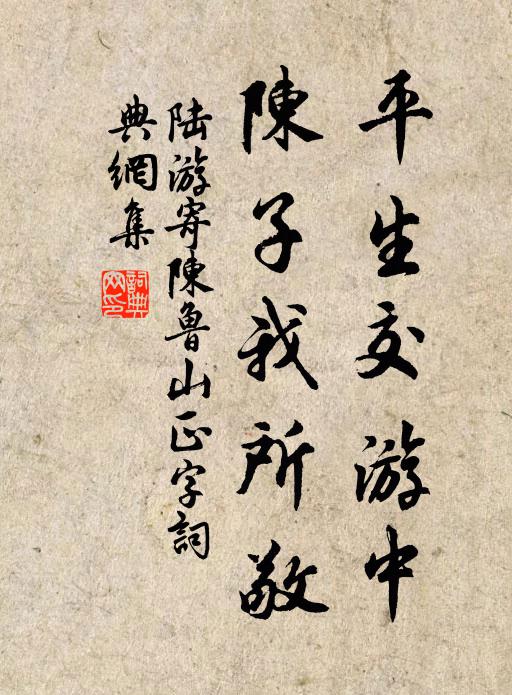 平生交游中
陳子我所敬
陆游寄陳魯山正字詞
典網集
詞典网印